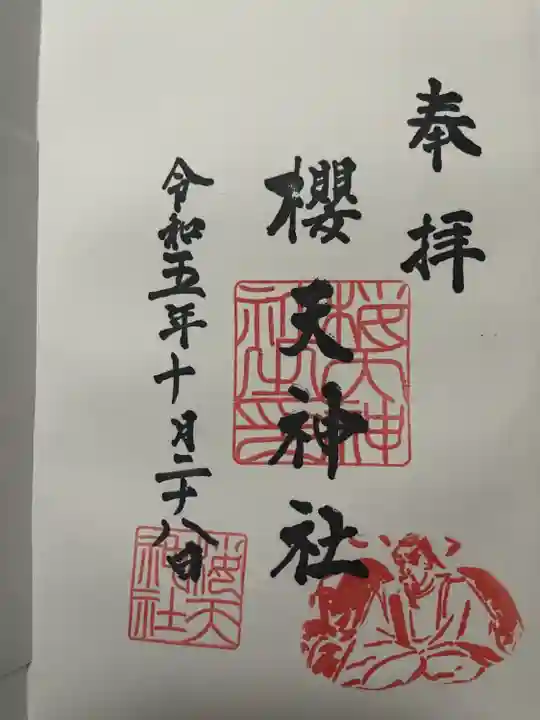 奉拝
櫻天神社
令和五年十月二十八日
桜天神
社之印
桜天
神社